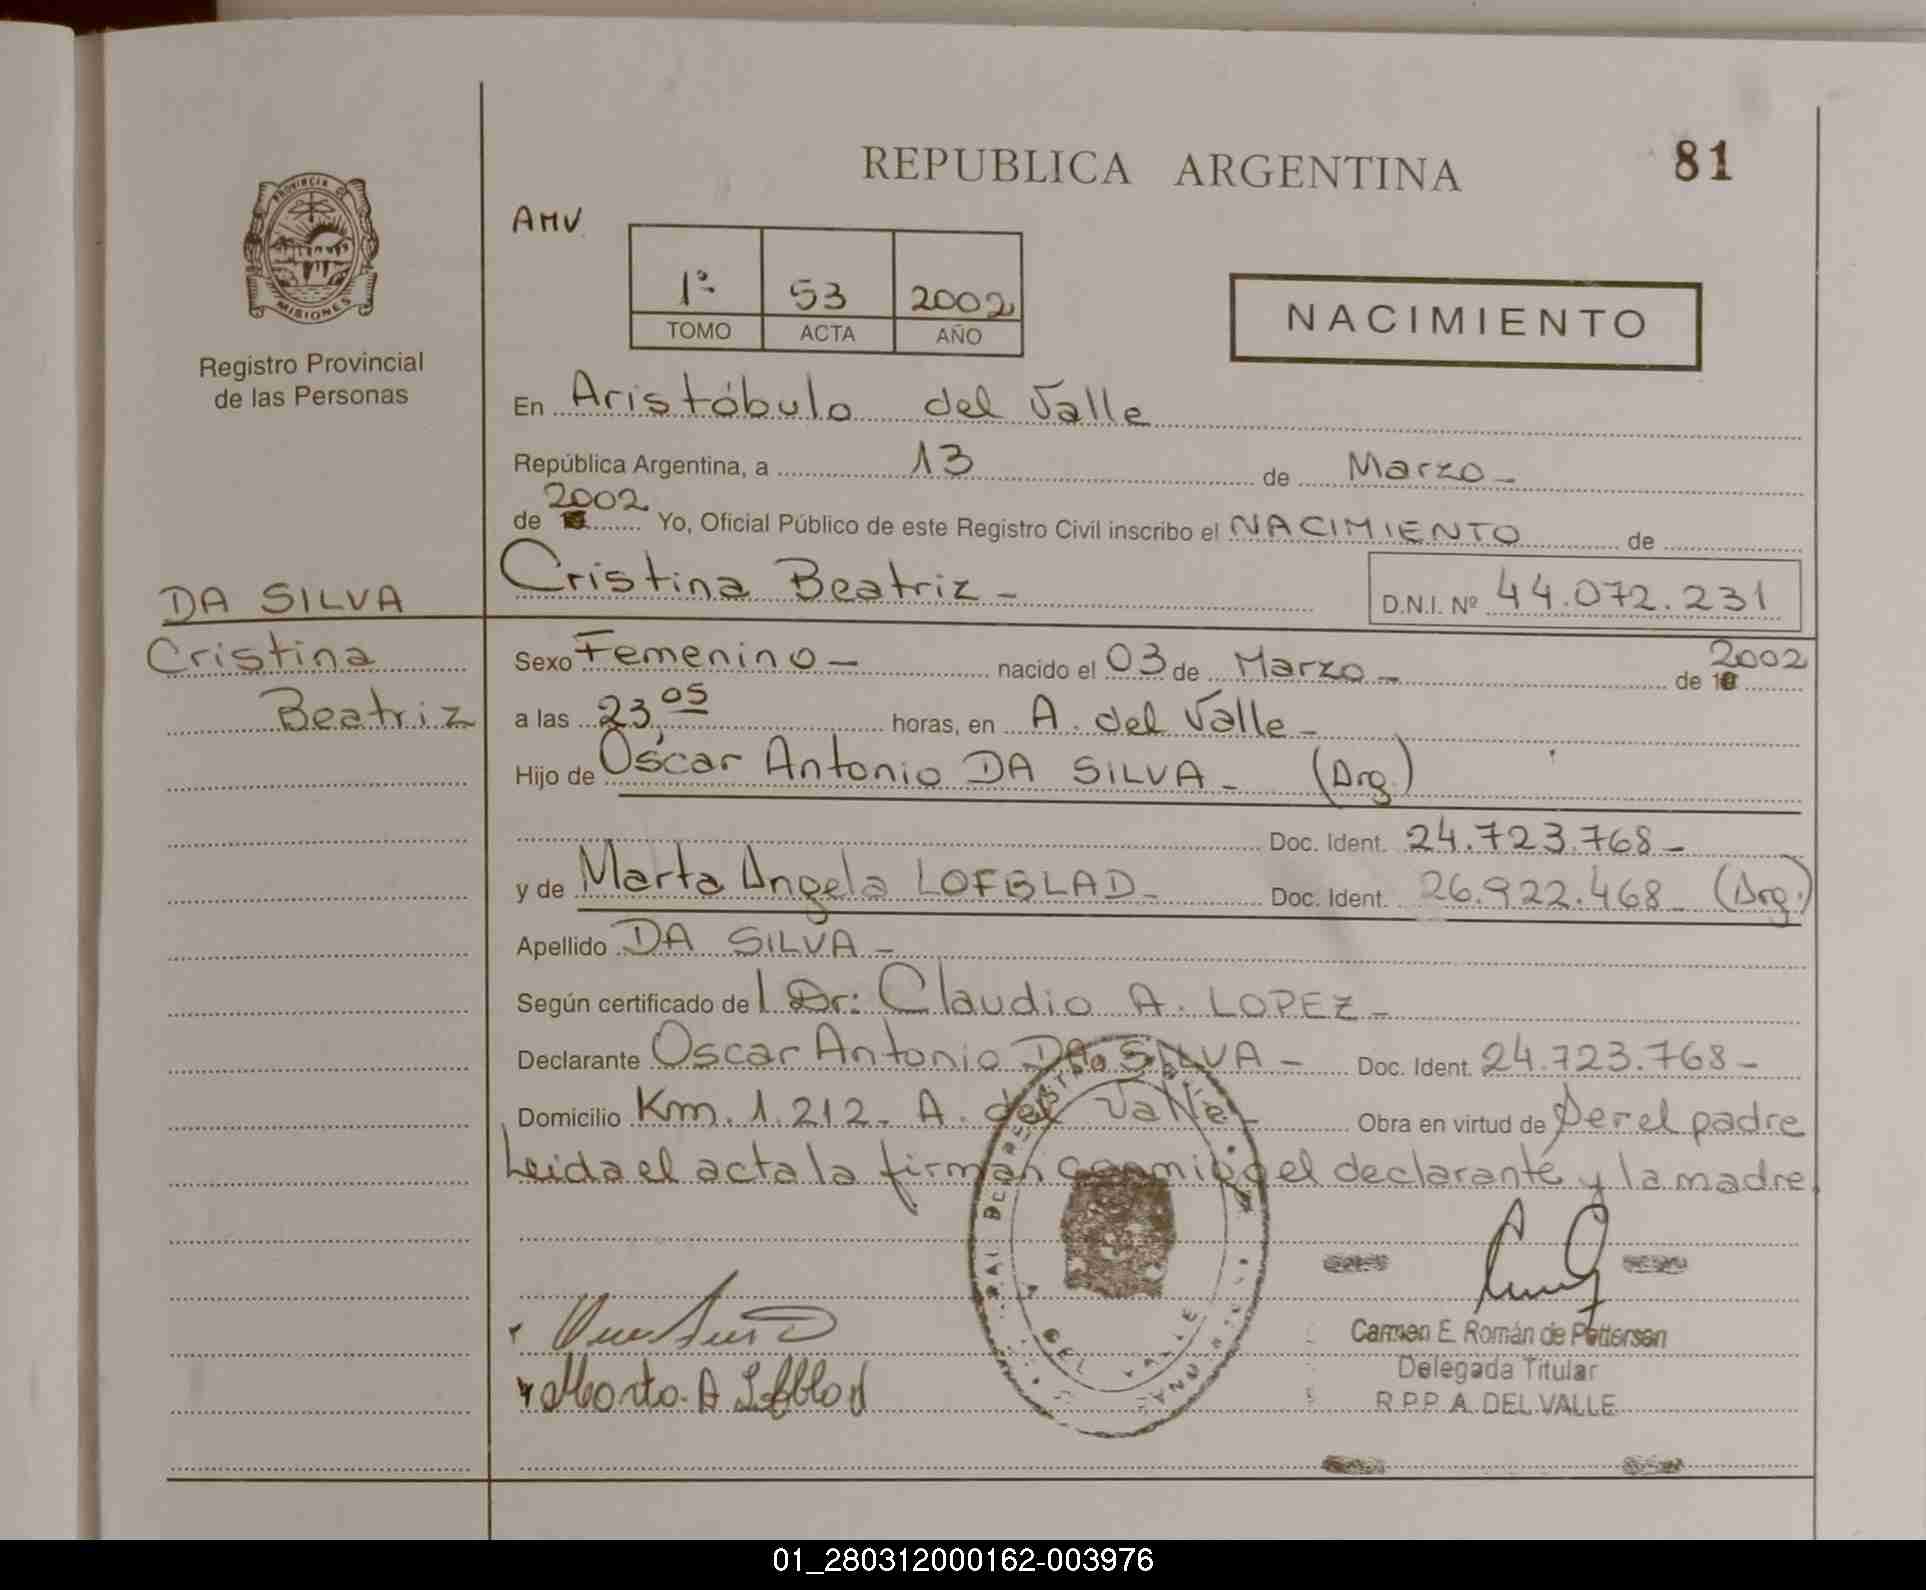 REPUBLICA ARGENTINA
81
PROVINCIA DE
MISIONES
Registro Provincial
de las Personas
AMV
1º 53 2002
TOMO ACTA AÑO
NACIMIENTO
En Aristóbulo del Valle
República Argentina, a 13 de Marzo -
de 2002 Yo, Oficial Público de este Registro Civil inscribo el NACIMIENTO de
DA SILVA
Cristina Beatriz -
D.N.I. Nº 44.072.231
Cristina
Beatriz
Sexo Femenino - nacido el 03 de Marzo - de 2002
a las 23,05 horas, en A. del Valle -
Hijo de Oscar Antonio DA SILVA - (Arg.)
Doc. Ident. 24.723.768 -
y de Marta Angela LOFBLAD - Doc. Ident. 26.922.468 - (Arg.)
Apellido DA SILVA -
Según certificado de l Dr: Claudio A. LOPEZ -
Declarante Oscar Antonio DA SILVA - Doc. Ident. 24.723.768 -
Domicilio Km. 1.212 - A. del Valle - Obra en virtud de ser el padre
Leida el acta la firman conmigo el declarante y la madre.
Marta A Lofblad
DEL VALLE
Carmen E. Román de Pettersen
Delegada Titular
R.P.P. A. DEL VALLE
01_280312000162-003976